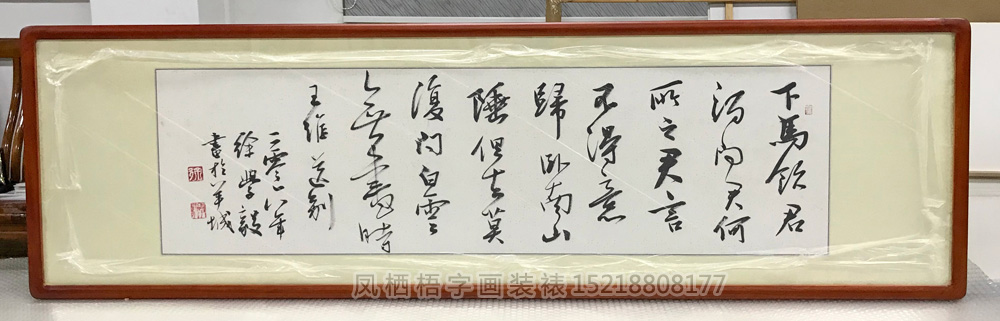 下馬飲君
酒問君何
所之君言
不得意
歸卧南山
陲但去莫
復問白雲
無盡時
王維送别
二零一八年
徐學毅
書於羊城
凤栖梧字画装裱15218808177